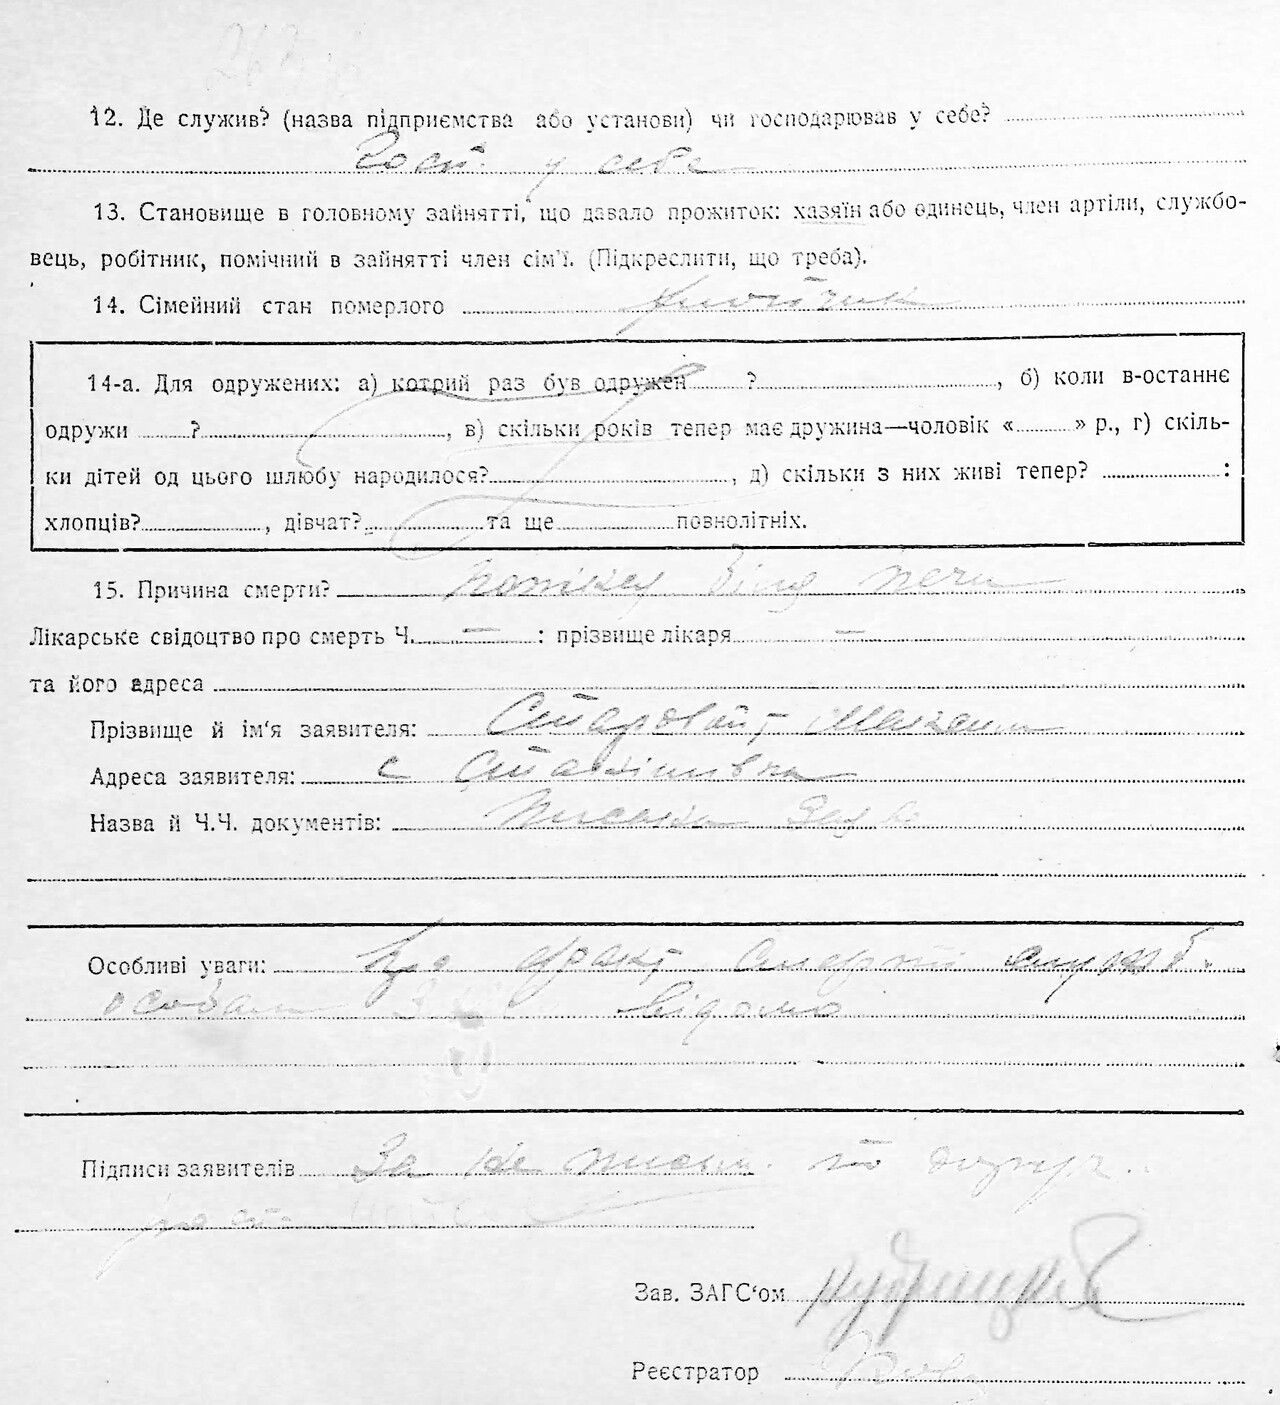 12. Де служив? (назва підприємства або установи) чи господарював у себе?
Госп. у себе
13. Становище в головному зайнятті, що давало прожиток: хазяїн або одинець, член артілі, службо-
вець, робітник, помічний в зайнятті член сім'ї. (Підкреслити, що треба).
14. Сімейний стан померлого
14-а. Для одружених: а) котрий раз був одружен ? , б) коли в-останнє
одружи ? , в) скільки років тепер має дружина—чоловік « » р., г) скіль-
ки дітей од цього шлюбу народилося? , д) скільки з них живі тепер? :
хлопців? , дівчат? та ще повнолітніх.
15. Причина смерти?
Лікарське свідоцтво про смерть Ч. — : прізвище лікаря —
та його адреса
Прізвище й ім'я заявителя: Старовойт
Адреса заявителя: с
Назва й Ч.Ч. документів:
Особливі уваги: Про факт смерти
особам відомо
Підписи заявителів За не письм. по доруч.
Зав. ЗАГС'ом
Реєстратор